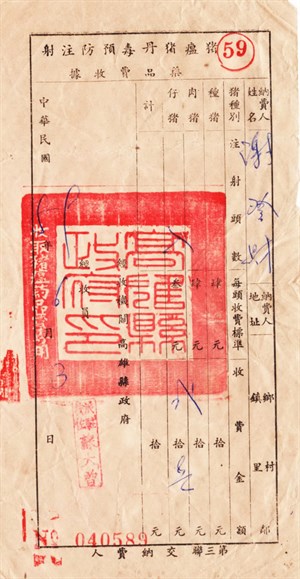 59
豬瘟豬丹毒預防注射
藥品費收據
納費人姓名
納費人地址 鄉鎮 村里 鄰
豬種別 注射頭數 每頭收費標準 收費金額
種豬 肆元 拾 元
肉豬 肆元 拾 元
仔豬 叁元 拾 元
計 拾 元
經收機關 高雄縣政府
經收員
中華民國 年 月 3 日
高雄縣政府印
№ 040589
第三聯交納費人